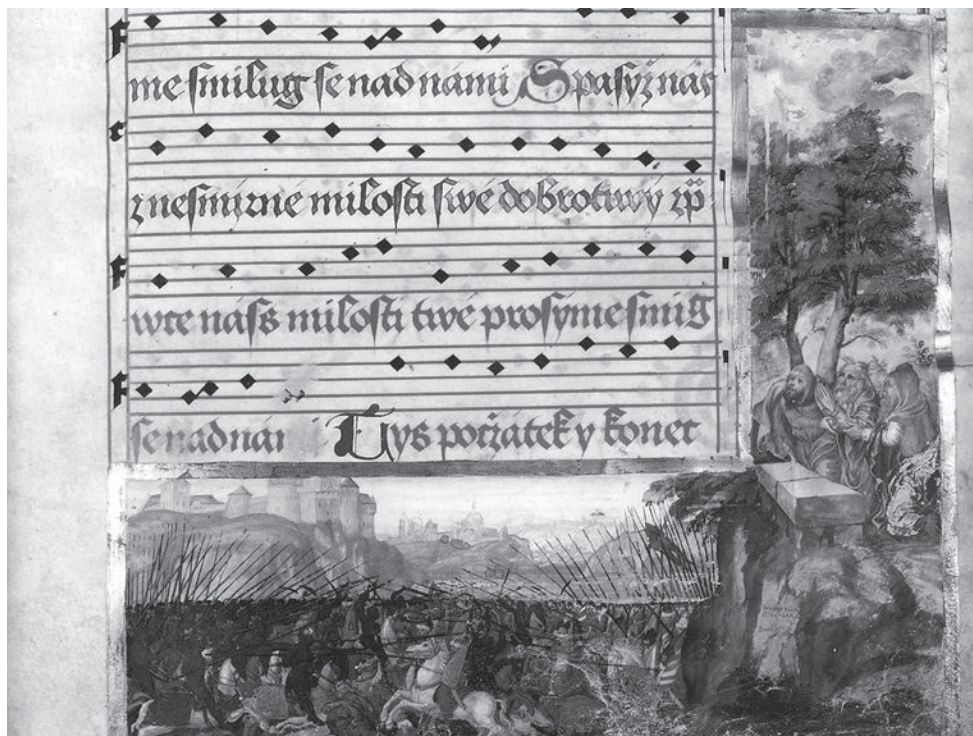 me smilug se nad námi Spasyž nás
z nesmirné milosti swé dobrotiwý zp̈
wte náss milosti twé prosyme smig
se nad námi Tys počzátek y konec